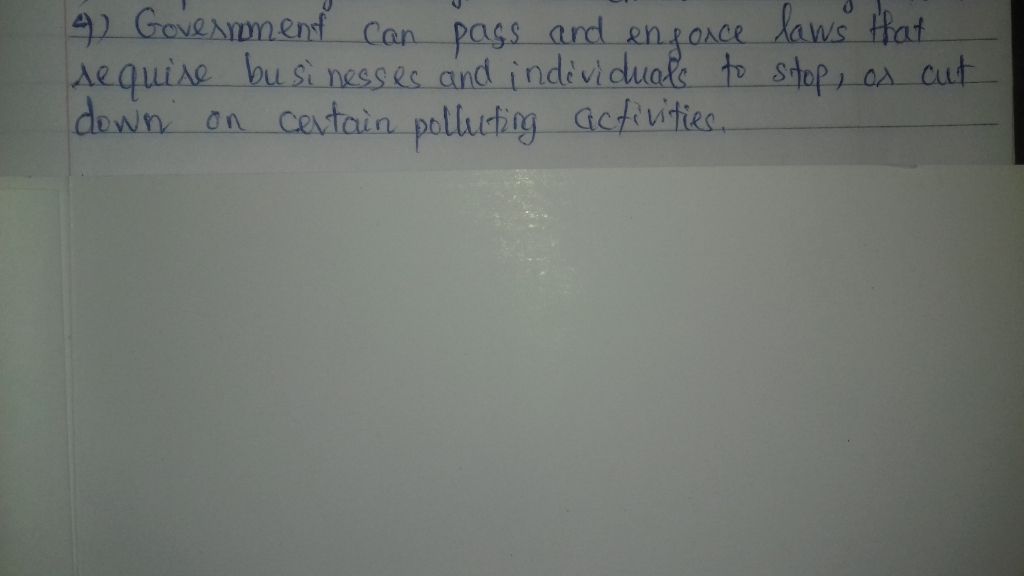 4) Government can pass and enforce laws that
require businesses and individuals to stop, or cut
down on certain polluting activities.